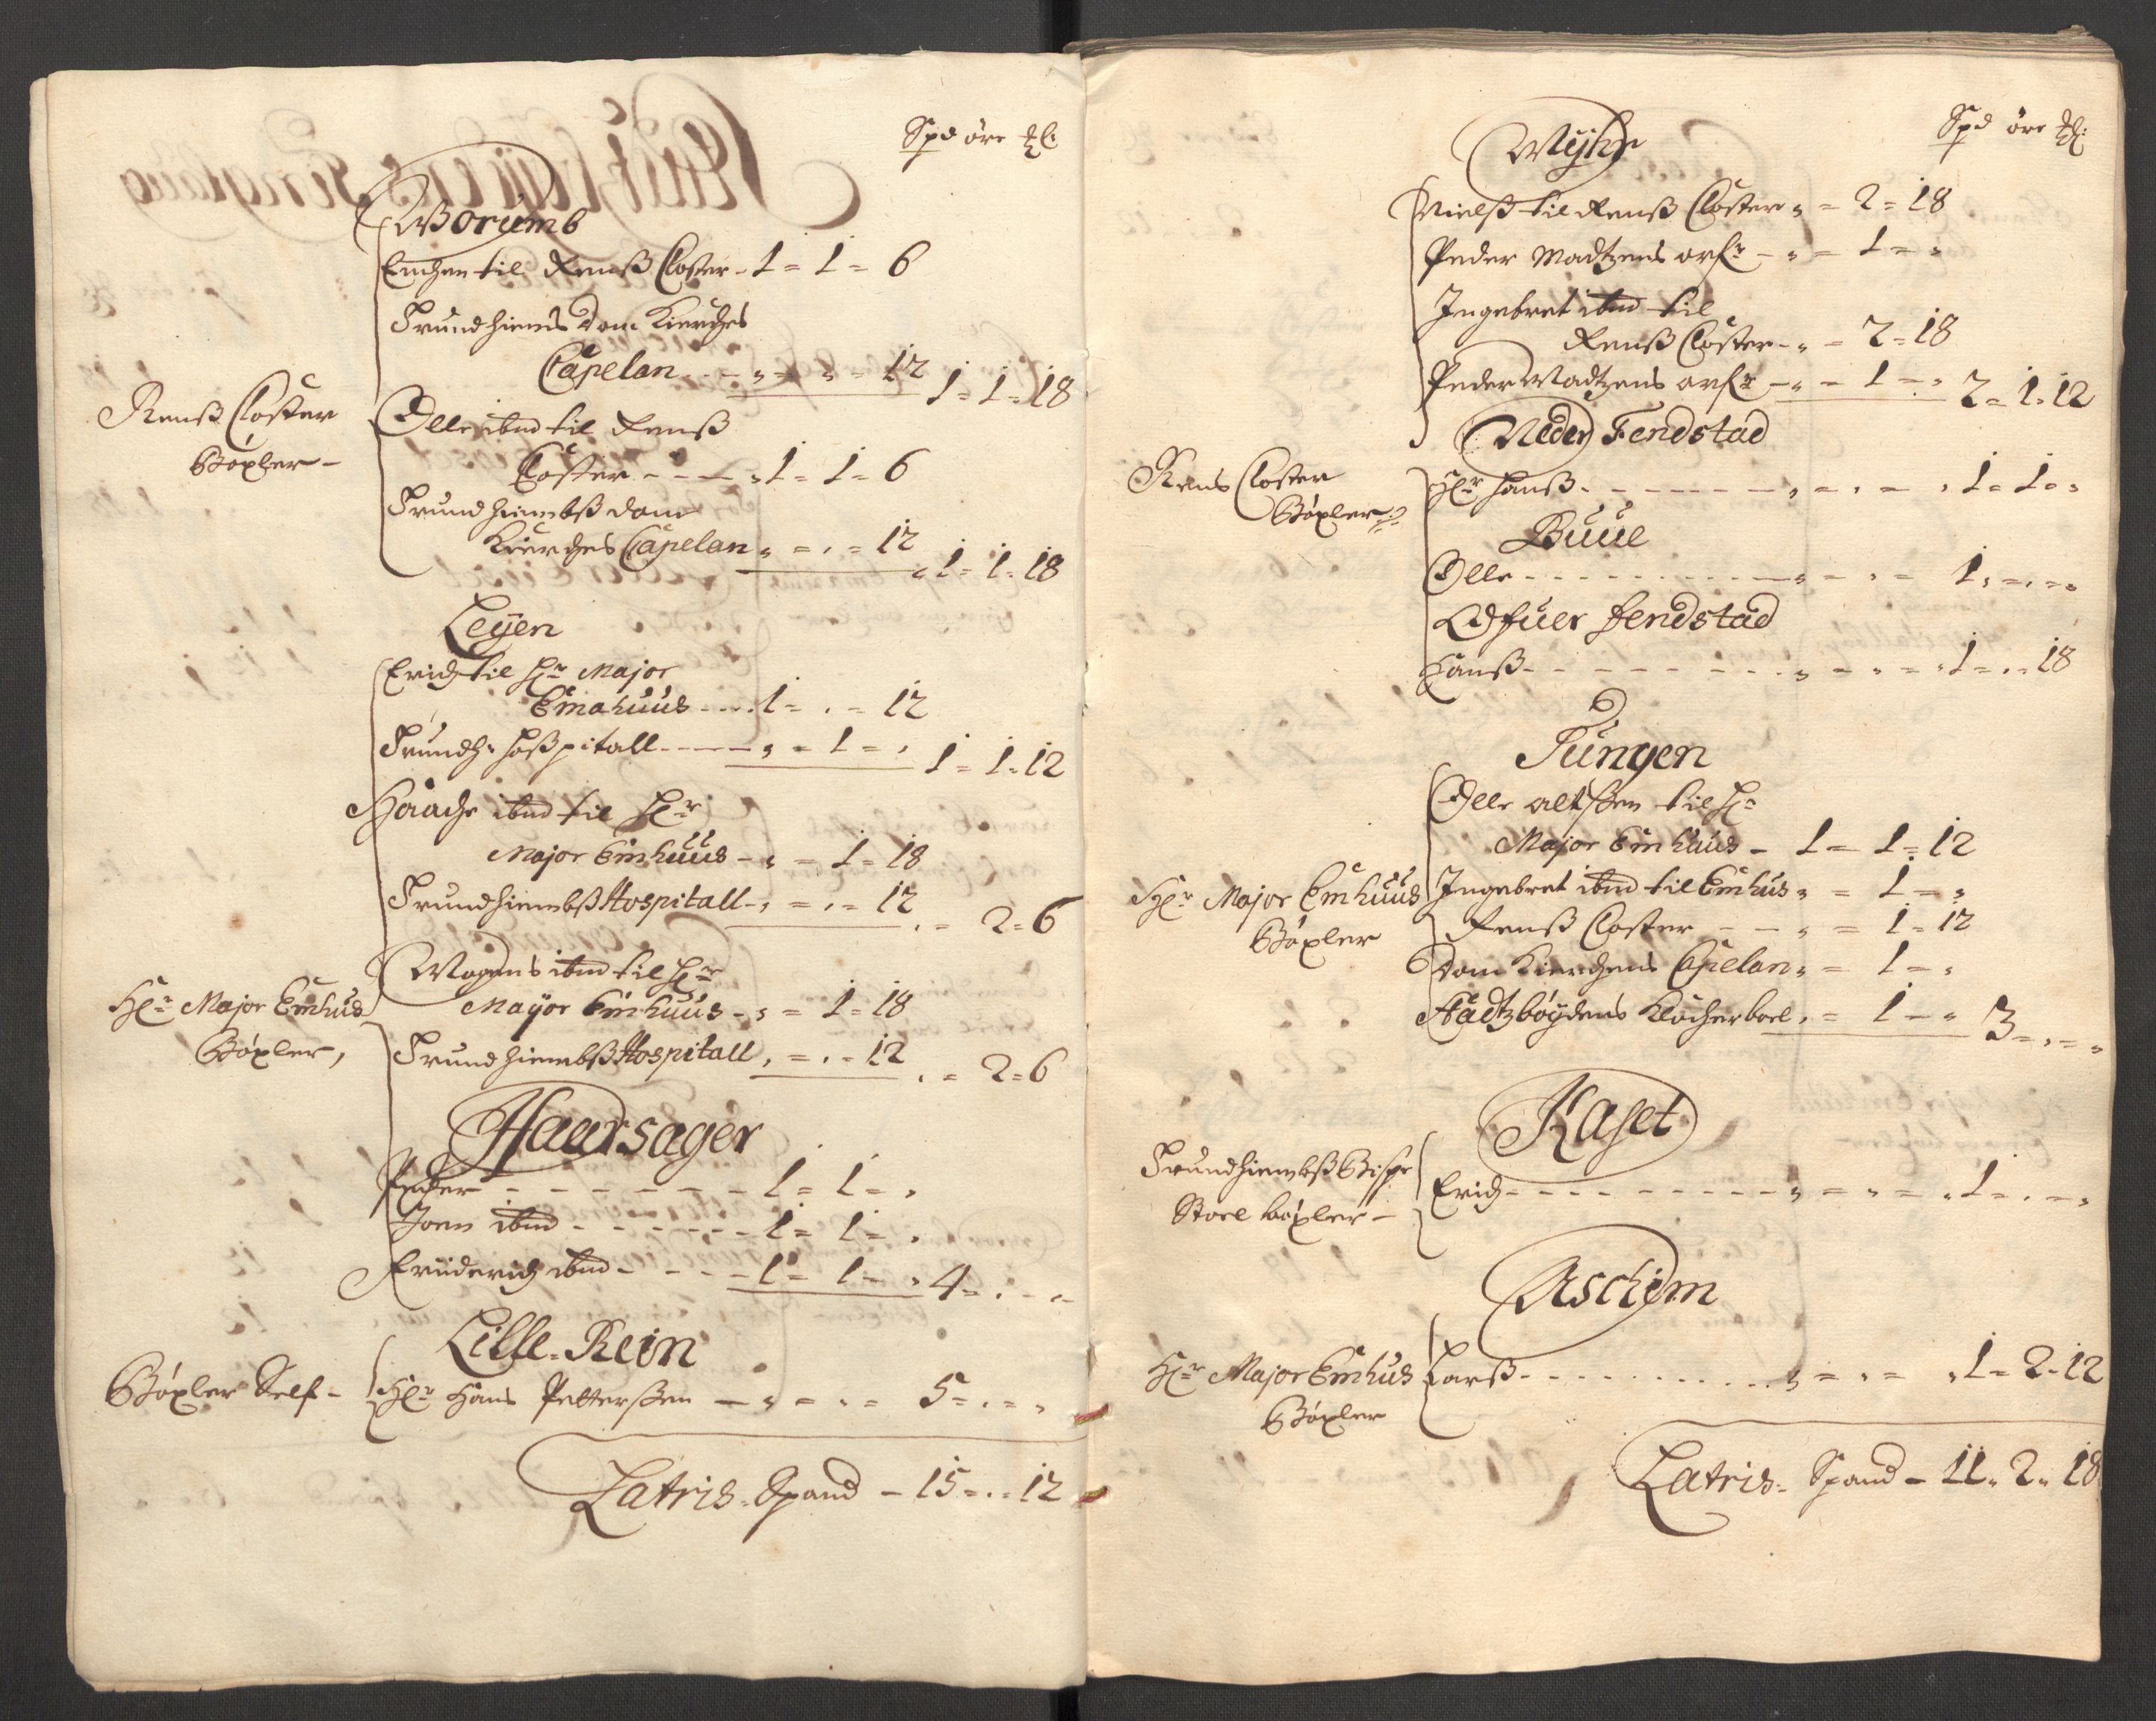 Spd øre ℔:
Worumb
Erichen til Renß Closter - 1 = 1 = 6
Trundhiems Dom Kierches
Capelan - - - „ = „ = 12 1 = 1 = 18
Renß Closter
Bøxler -
Olle ibm til Renß
Closter - - - - „ 1 = 1 = 6
Trundhiembß dom
Kierches Capelan „ = „ = 12 „ 1 = 1 = 18
Leyen
Erich til Hr Major
Emahuus - - - 1 = „ = 12
Trundh: Hoßpitall - - - - „ = 1 = „ 1 = 1 = 12
Haach ibm til Hr
Major Emhuus - „ = 1 = 18
Trundhiembß Hospitall - „ = „ = 12 „ = 2 = 6
Mogens ibm til Hr
Hr Major Emhus
Mayor Emhuus - „ = 1 = 18
Bøxler,
Trundhiembß Hospitall „ = „ = 12 „ = 2 = 6
Haursager
Peder - - - - - - - 1 = 1 = „
Joen ibm - - - - - - 1 = 1 = „
Friderich ibm - - - - 1 = 1 = „ 4 = „ = „
Lille-Rein
Bøxler Self - Hr Hans Petterßen - „ = „ = 5 = „ = „
Latris. Spand - 15 = „ = 12
Spd øre ℔:
Myhr
Nielß til Renß Closter „ = 2 = 18
Peder Madtzens arfr - „ = 1 = „
Ingebret ibm til
Renß Closter - „ = 2 = 18
Peder Madtzens arfr - „ = 1 = „ 2 = 1 = 12
Neder Fendstad
Rens Closter
Bøxler
Hr Hanß - - - - - - - „ = „ = „ 1 = 1 = „
Buue
Olle - - - - - - - - - „ = „ = 1 „ = „ = „
Ofuer fendstad
Hanß - - - - - - - - - „ = „ = „ 1 = „ = 18
Tungen
Olle altßen til Hr
Major Emhuus - 1 = 1 = 12
Hr Major Emhuus
Bøxler
Ingebret ibm til Emhus „ = 1 = „
Renß Closter - - „ = 1 = 12
Dom Kierchens Capelan „ = 1 = „
Stadtzbøydens Klocherboel „ = 1 = „ 3 = „ = „
Kaset
Trundhiembß Bispe
Stoel bøxler -
Erich - - - - - - - - - „ = „ = „ 1 = „ = „
Aschem
Hr Major Emhus
Bøxler
Larß - - - - - - - - - „ = „ = „ 1 = 2 = 12
Latris. Spand - 11 = 2 = 18